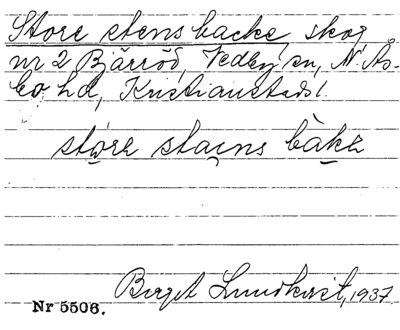 Store stens backe, skog
nr 2 Bjärröd, Vedby sn, N. Ås-
bo hd, Kristianstads l.
störe stains bàke
Birgit Lundkvist, 1937
Nr 5506.